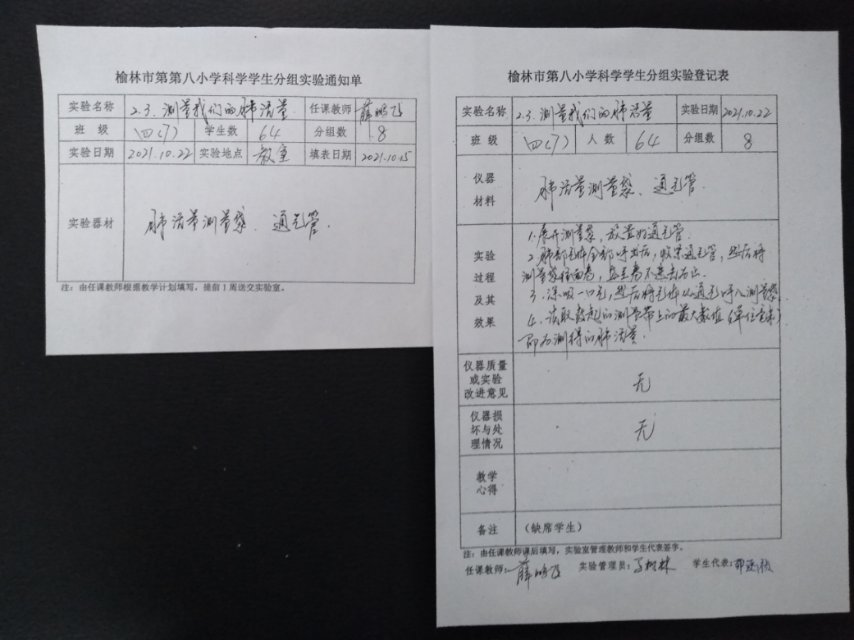 榆林市第第八小学科学学生分组实验通知单
实验名称 2.3.测量我们的肺活量 任课教师 薛鹏飞
班 级 四(7) 学生数 64 分组数 8
实验日期 2021.10.22 实验地点 教室 填表日期 2021.10.15
实验器材 肺活量测量袋、通气管.
注：由任课教师根据教学计划填写，提前1周送交实验室。
榆林市第八小学科学学生分组实验登记表
实验名称 2.3.测量我们的肺活量 实验日期 2021.10.22
班 级 四(7) 人 数 64 分组数 8
仪器
材料
肺活量测量袋、通气管.
实验
过程
及其
效果
1.展开测量袋，放置好通气管.
2.肺部气体全部呼出后，
测量袋
3.深吸一口气，然后将气体从通气呼入测量袋.
4.读取鼓起的测量带上的最大数值(单位毫升)
即为测得的肺活量.
仪器质量
或实验
改进意见
无
仪器损
坏与处
理情况
无
教学
心得
备注 （缺席学生）
注：由任课教师课后填写，实验室管理教师和学生代表签字。
任课教师：薛鹏飞 实验管理员：马树林 学生代表：